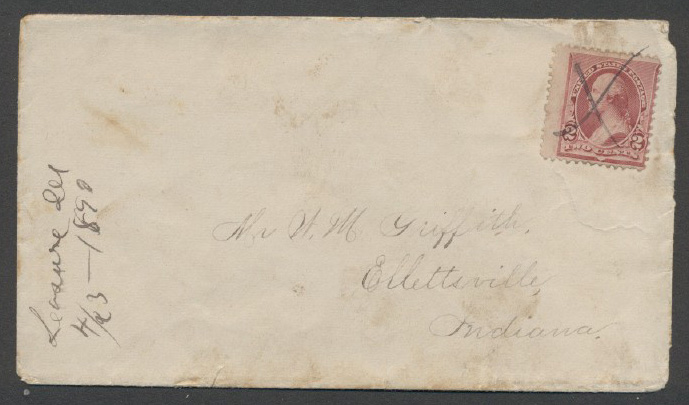 UNITED STATES POSTAGE
2 2
TWO CENTS
Mr W. M Griffith,
Ellettsville,
Indiana.
Leasure Ill
4/23 — 1890